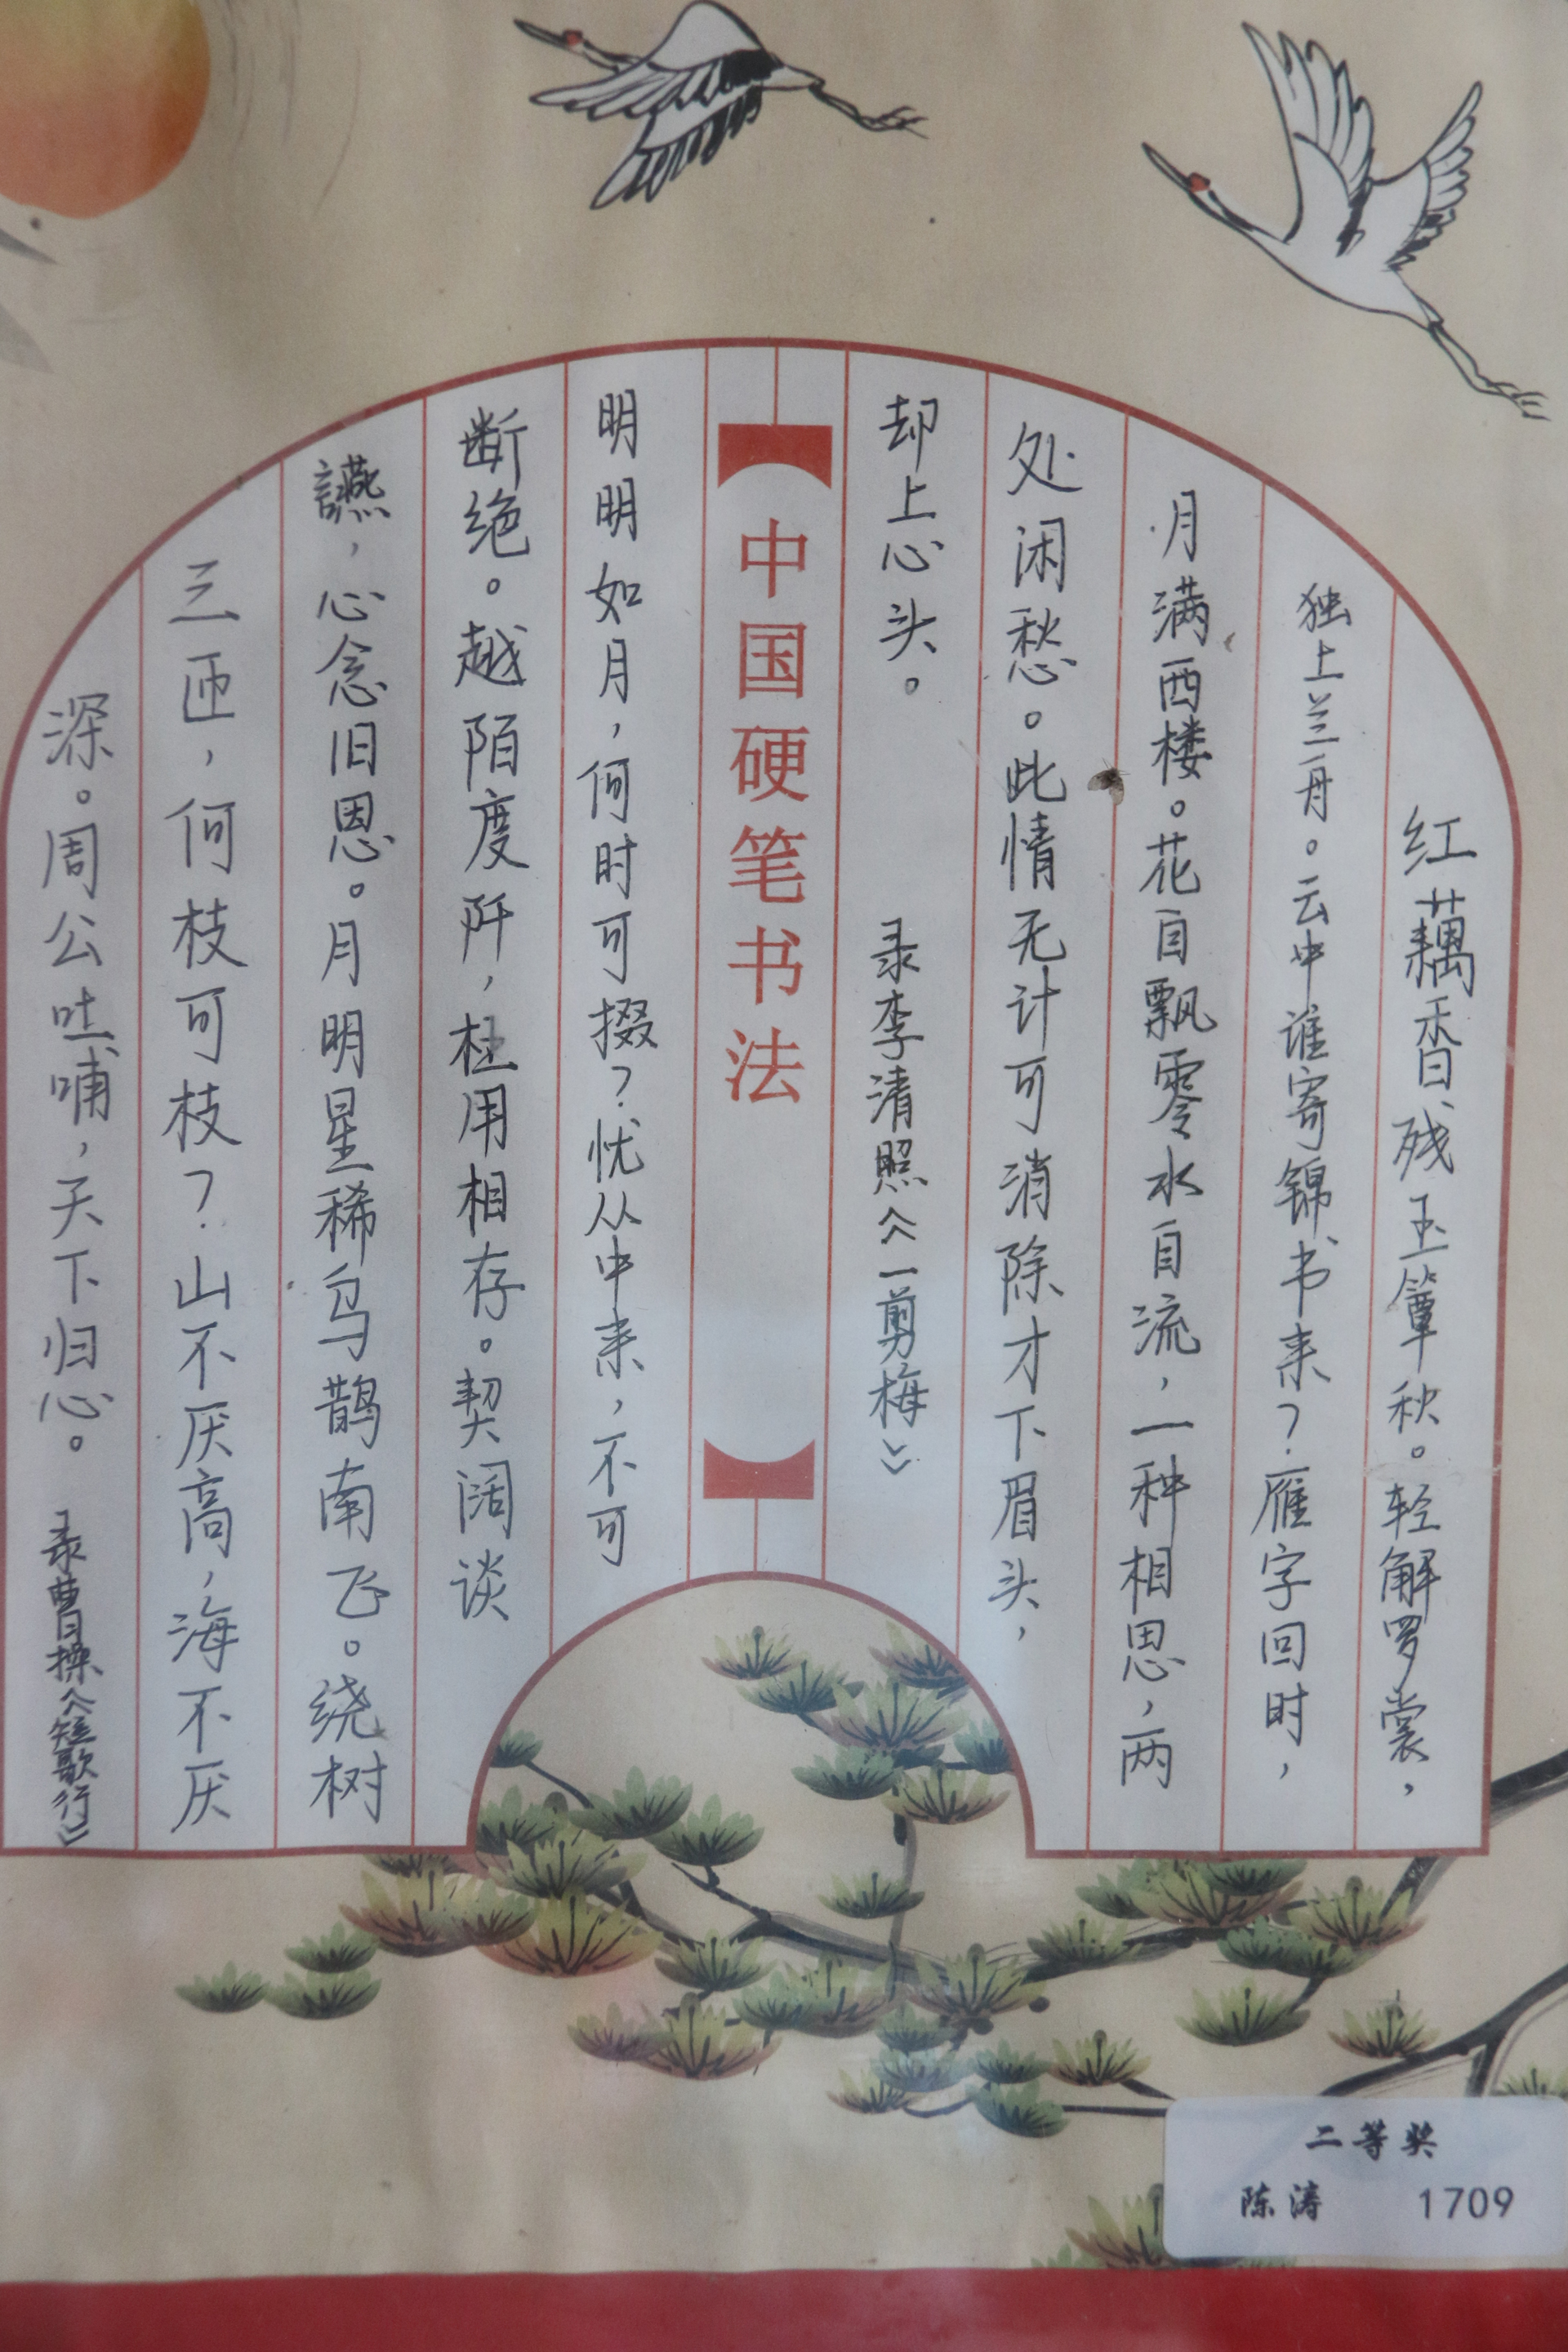 红藕香残玉簟秋。轻解罗裳，
独上兰舟。云中谁寄锦书来？雁字回时，
月满西楼。花自飘零水自流，一种相思，两
处闲愁。此情无计可消除才下眉头，
却上心头。 录李清照《一剪梅》
中国硬笔书法
明明如月，何时可掇？忧从中来，不可
断绝。越陌度阡，枉用相存。契阔谈
讌，心念旧恩。月明星稀乌鹊南飞。绕树
三匝，何枝可枝？山不厌高，海不厌
深。周公吐哺，天下归心。 录曹操《短歌行》
二等奖
陈涛 1709